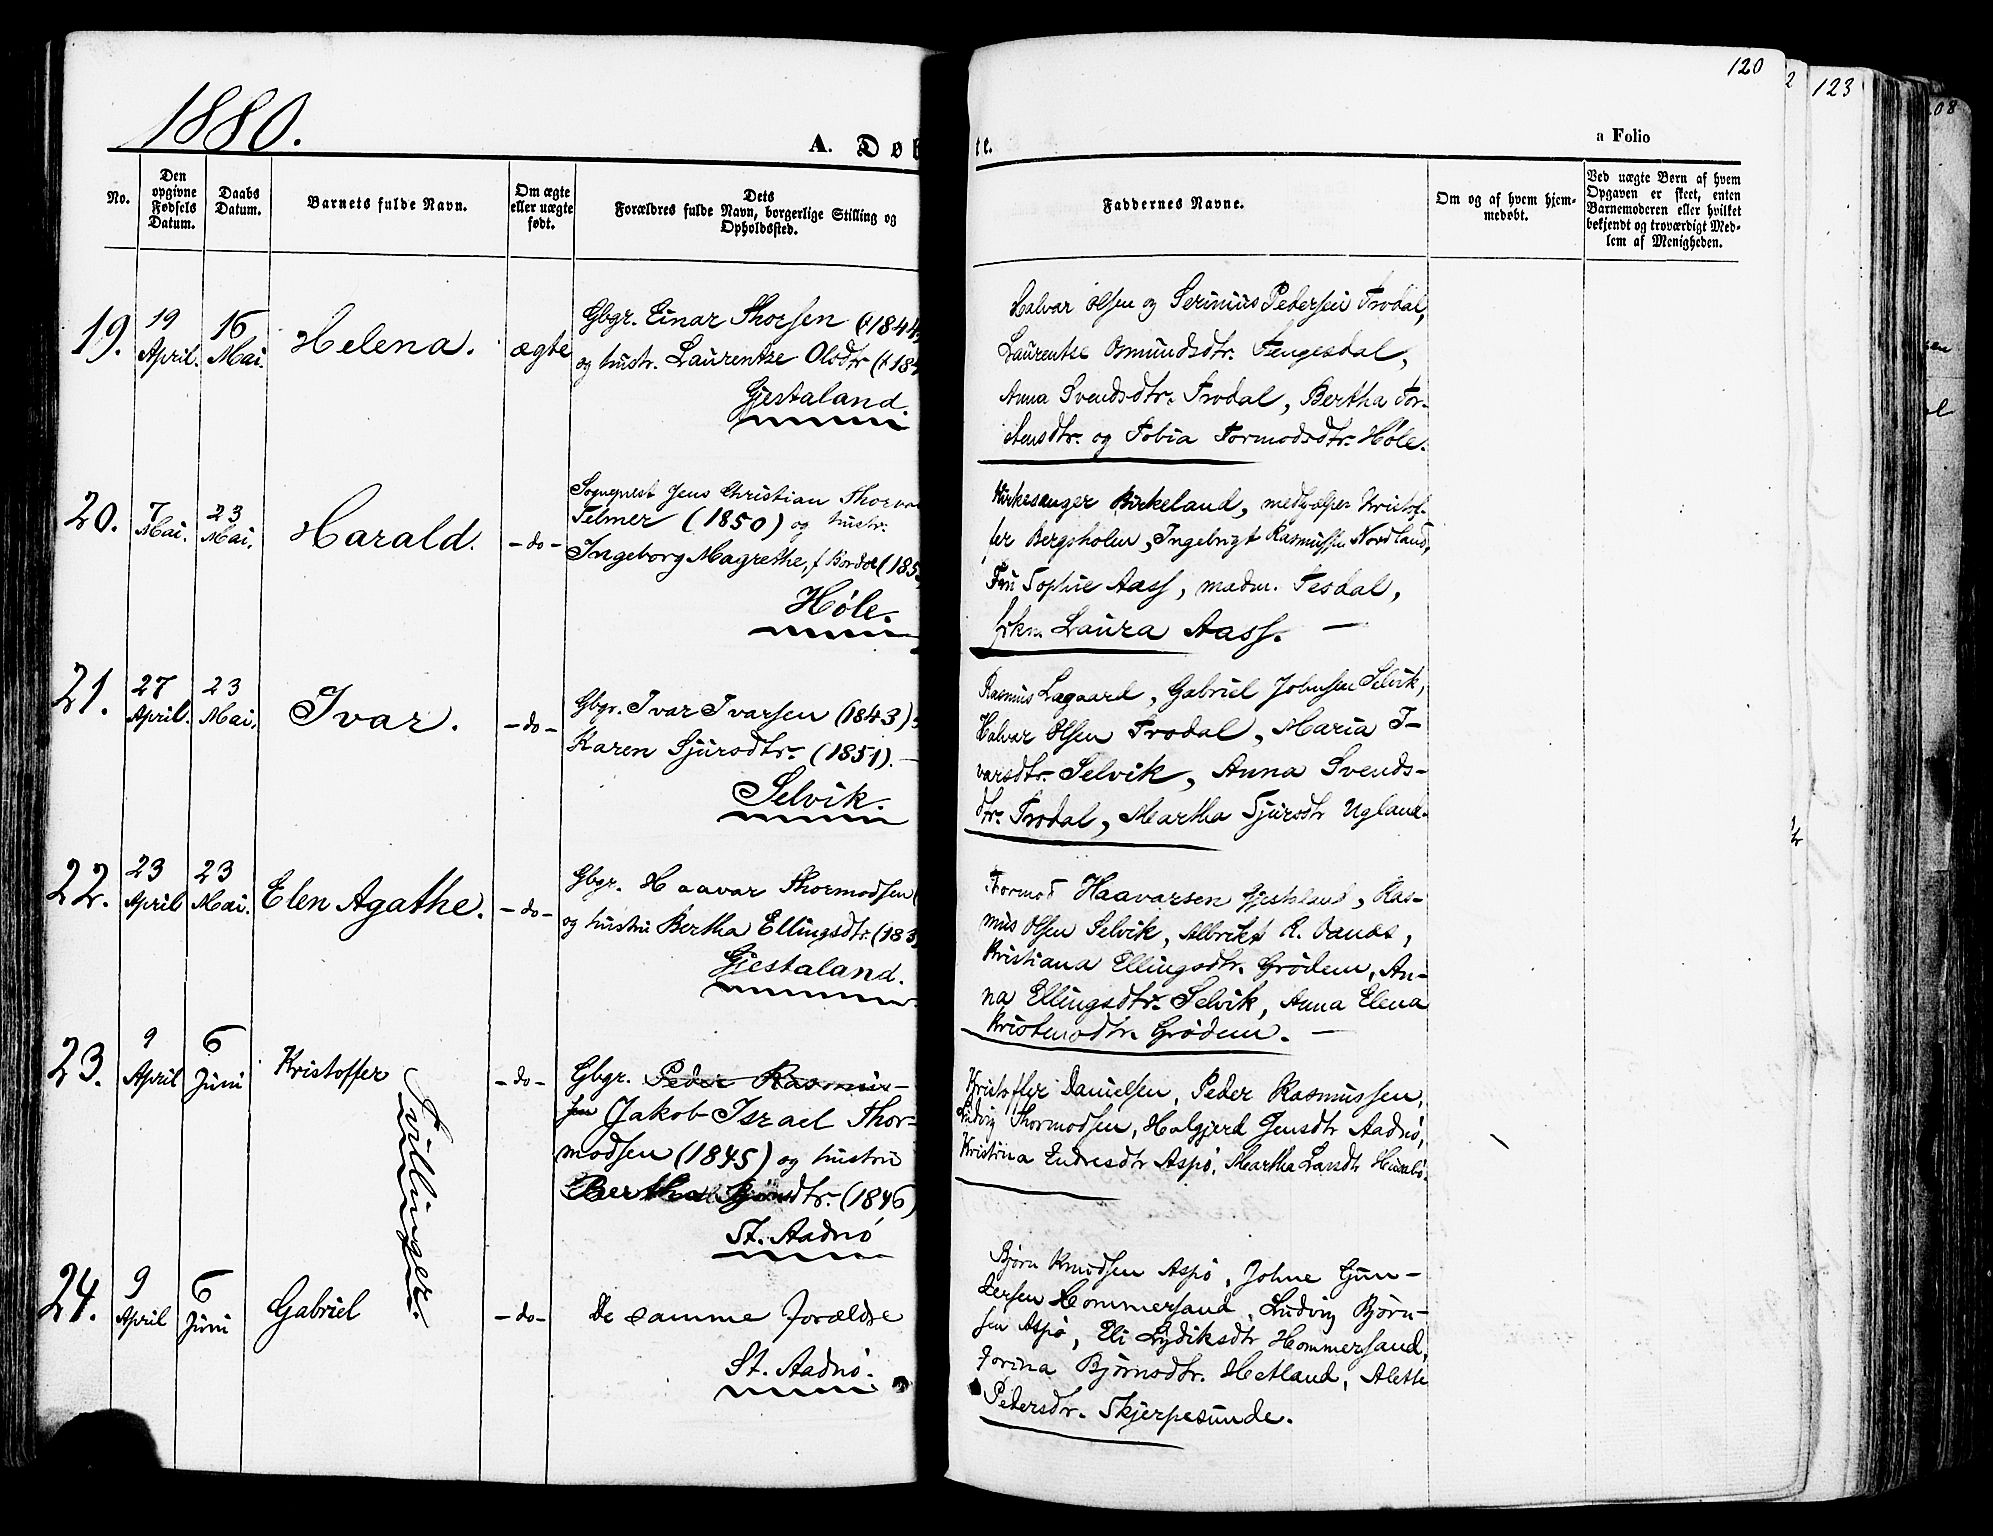 1880.
120
2
123
08
A. Døb
te.
a Folio
No.
Den
opgivne
Fødsels
Datum.
Daabs
Datum.
Barnets fulde Navn.
Om ægte
eller uægte
født.
Dets
Forældres fulde Navn, borgerlige Stilling og
Opholdssted.
Faddernes Navne.
Om og af hvem hjem-
medøbt.
Ved uægte Børn af hvem
Opgaven er skeet, enten
Barnemoderen eller hvilket
bekjendt og troværdigt Med-
lem af Menigheden.
19.
19
April.
16
Mai.
Helena.
ægte
Gbgr. Einar Thorsen (f 1844
og hustr. Laurentze Olsdtr (f 184
Gjestaland.
Halvar Olsen og Serinius Pedersen Frodal,
Laurentse Omundsdtr. Tengesdal,
Anna Svendsdtr. Frodal, Bertha Tor-
stensdtr. og Tobia Tormodsdtr. Høle.
20.
7
Mai.
23
Mai.
Harald.
- do -
Sognepræst Jens Christian
Telmer (1850) og hustr.
Ingeborg Magrethe, f (185
Høle.
Kirkesanger Birkeland, medhjælper Kristof-
fer Bergsholm, Ingebrigt Rasmussen Nordland,
Fru Sophie Aass, madm. Tesdal,
frkn. Laura Aass. —
21.
27
April.
23
Mai.
Ivar.
- do -
Gbgr. Ivar Ivarsen (1843)
Karen Sjursdtr. (1851). -
Selvik.
Rasmus Lægaard, Gabriel Johnsen Selvik,
Halvar Olsen Frodal, Maria I-
varsdtr. Selvik, Anna Svends-
dtr. Frodal, Martha Sjursdtr Ugland.
22.
23
April
23
Mai.
Elen Agathe.
- do -
Gbgr. Haavar Thormodsen (
og hustru Bertha Ellingsdtr. (183
Gjestaland.
Tormod Haavarsen Gjestaland, Ras-
mus Olsen Selvik, Albrikt R. Vanas,
Kristiana Ellingsdtr. Grødem, An-
na Ellingsdtr. Selvik, Anna Elena
Kristensdtr. Grødem. —
23.
9
April
6
Juni
Kristoffer
Tvillinger.
- do -
Gbgr. Peder Rasmus-
sen Jakob Israel Thor-
modsen (1845) og hustru
Bertha dtr. (1846)
St. Aadnø
Kristoffer Danielsen, Peder Rasmussen,
Ludvig Thormodsen, Halgjerd Jensdtr Aadnø,
Kristina Endresdtr Aspø, Martha Larsdtr
24.
9
April
6
Juni
Gabriel
- do -
De samme Forældre
St. Aadnø.
Bjørn Knudsen Aspø, Johne Gun-
dersen Hommersand, Ludvig Bjørn-
sen Aspø, Eli Lydiksdtr Hommersand,
Jorina Bjørnsdtr. Hetland, Alette
Pedersdtr. Skjerpesunde.